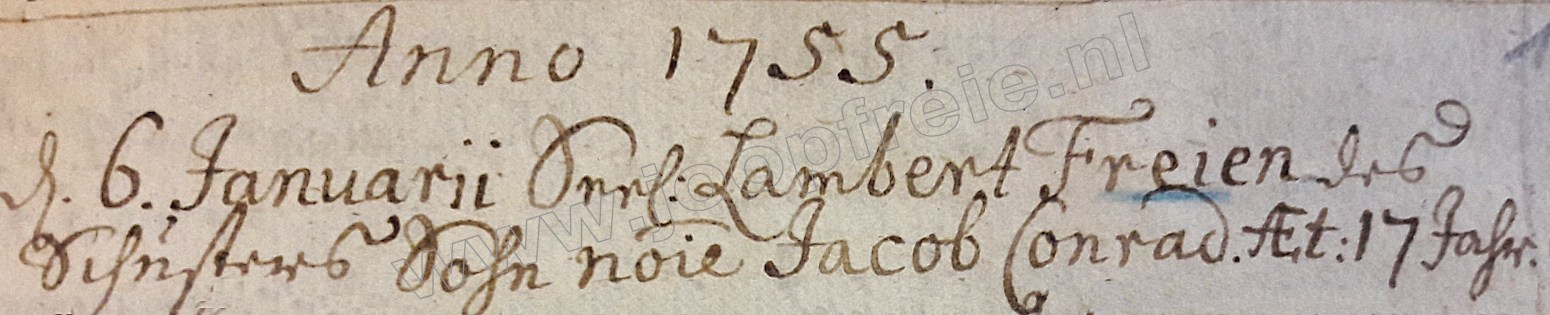 Anno 1755.
d. 6. Januarii Seel: Lambert Freien des
Schusters Sohn noie Jacob Conrad. Æt: 17 Jahr.
www.joopfreie.nl